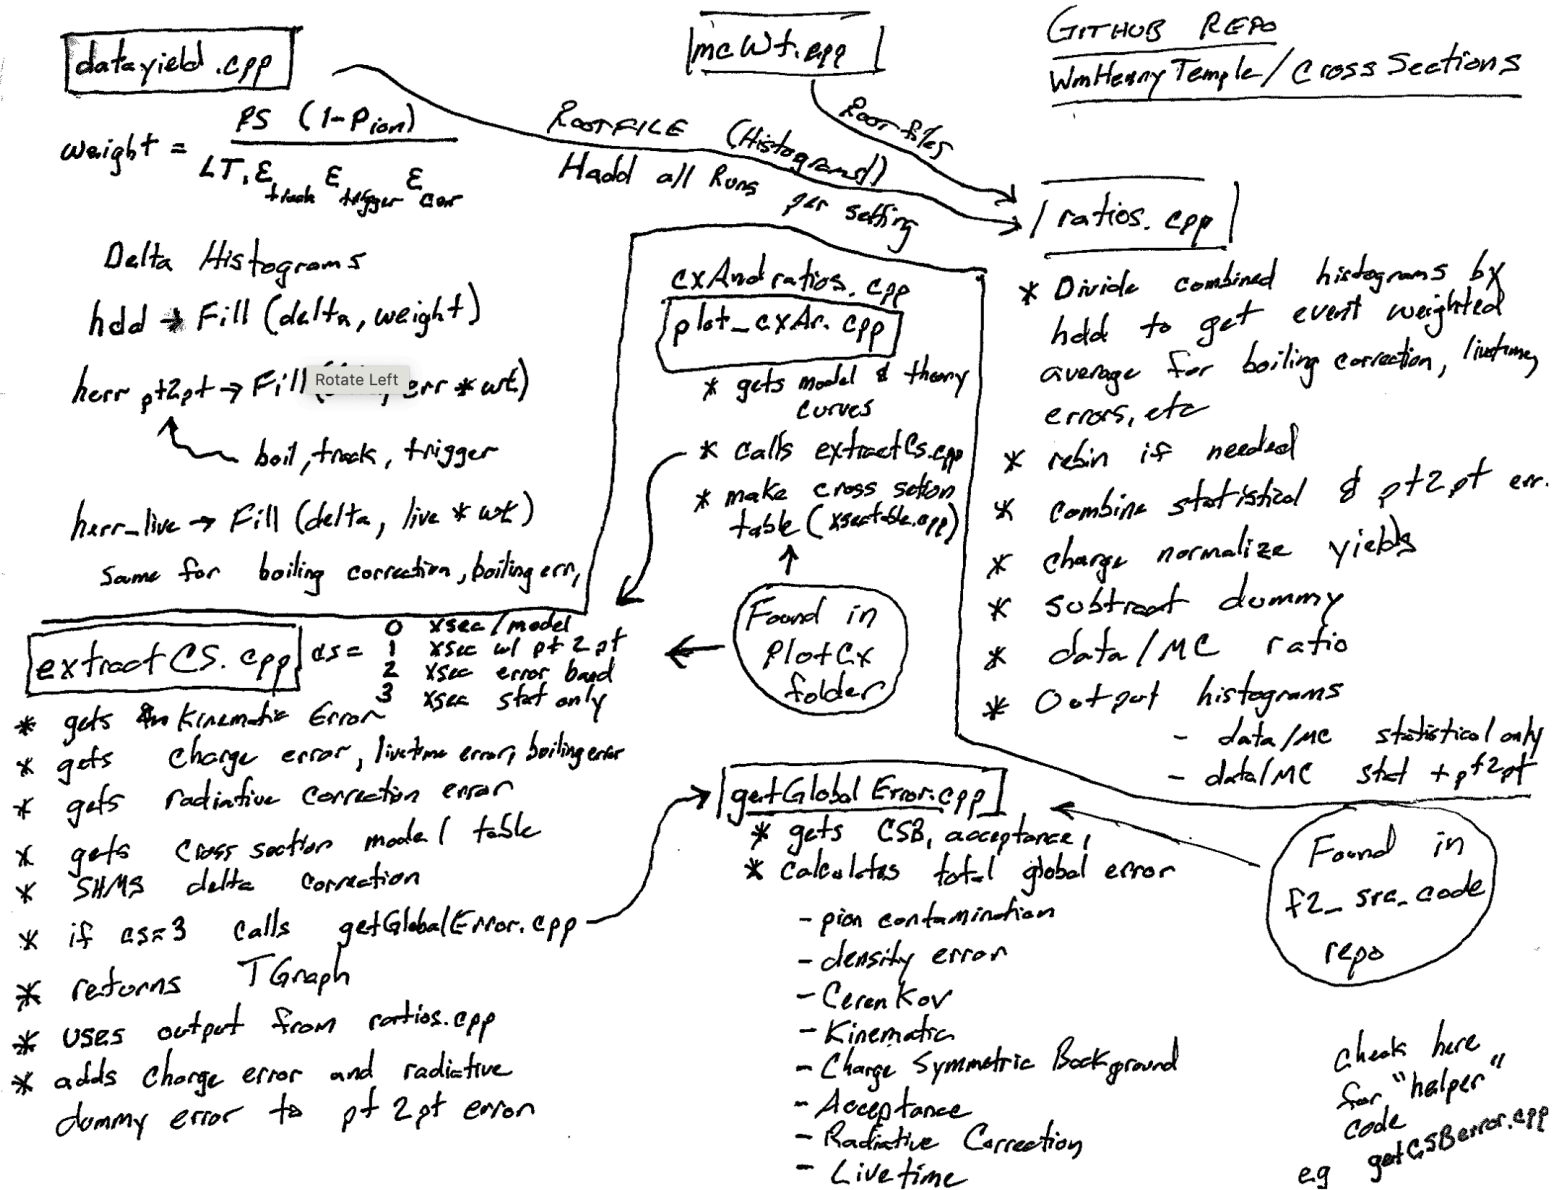 datayield.cpp
weight = PS (1-Pion)
LT, ε track ε trigger ε cer
Delta Histograms
hdd → Fill (delta, weight)
herr pt2pt → Fill ( err * wt)
Rotate Left
boil, track, trigger
herr_live → Fill (delta, live * wt)
Same for boiling correction, boiling err,
mcWt.cpp
Root files
ROOTFILE (Histograms)
Hadd all Runs per setting
GITHUB REPO
WmHenryTemple/CrossSections
ratios.cpp
* Divide combined histograms by
hdd to get event weighted
average for boiling correction, livetime,
errors, etc
* rebin if needed
* combine statistical & pt2pt err.
* charge normalize yields
* subtract dummy
* data/MC ratio
* Output histograms
- data/MC statistical only
- data/MC stat + pt2pt
cxAndratios.cpp
plot_cxAr.cpp
* gets model & theory
curves
* calls extractCs.cpp
* make cross setion
table (xsectable.cpp)
Found in
PlotCx
folder
extractCS.cpp cs =
0 xsec/model
1 xsec w/ pt 2 pt
2 xsec error band
3 xsec stat only
* gets Kinematic Error
* gets charge error, livetime error, boiling error
* gets radiative correction error
* gets cross section model table
* SHMS delta correction
* if cs=3 calls getGlobalError.cpp
* returns TGraph
* uses output from ratios.cpp
* adds charge error and radiative
dummy error to pt 2pt error
getGlobalError.cpp
* gets CSB, acceptance,
* calculates total global error
- pion contamination
- density error
- Cerenkov
- Kinematic
- Charge Symmetric Background
- Acceptance
- Radiative Correction
- Livetime
Found in
f2_src_code
repo
check here
for "helper"
code
e.g getCSBerror.cpp